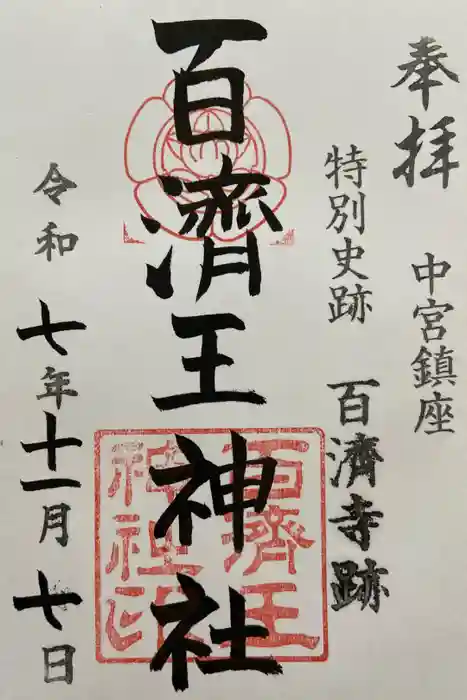 奉拝
中宮鎮座
特別史跡
百済寺跡
百濟王神社
百濟王
神社印
令和七年十一月七日